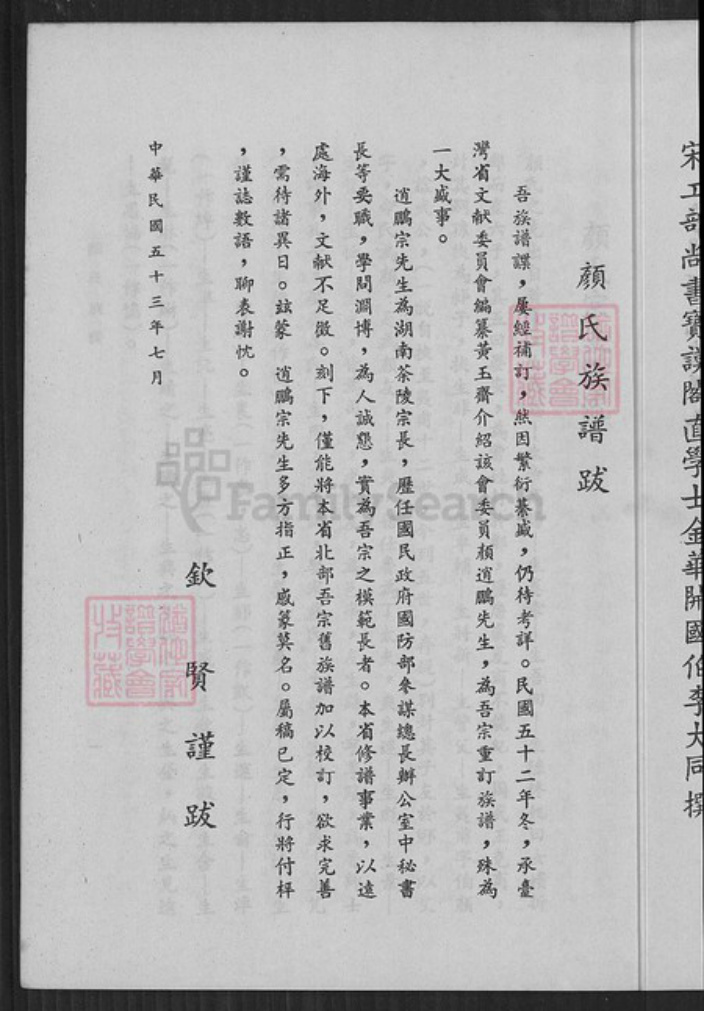 宋工部尚書寶謨閣直學士金華開國伯李大同撰
顏氏族譜跋
吾族譜諜，屢經補訂，然因繁衍綦盛，仍待考詳。民國五十二年冬，承臺
灣省文献委員會編纂黃玉齋介紹該會委員顏逍鵬先生，為吾宗重訂族譜，殊為
一大盛事。
逍鵬宗先生為湖南茶陵宗長，歷任國民政府國防部參謀總長辦公室中秘書
長等要職，學問淵博，為人誠懇，實為吾宗之模範長者。本省修譜事業，以遠
處海外，文献不足徵。刻下，僅能將本省北部吾宗舊族譜加以校訂，欲求完善
，需待諸異日。玆蒙 逍鵬宗先生多方指正，感篆莫名。屬稿已定，行將付梓
，謹誌數語，聊表謝忱。
欽賢謹跋
中華民國五十三年七月
FamilySearch